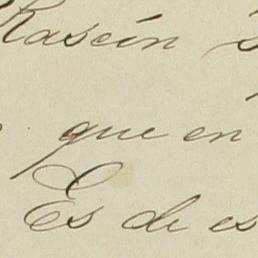 Rascón
que en
Es de es